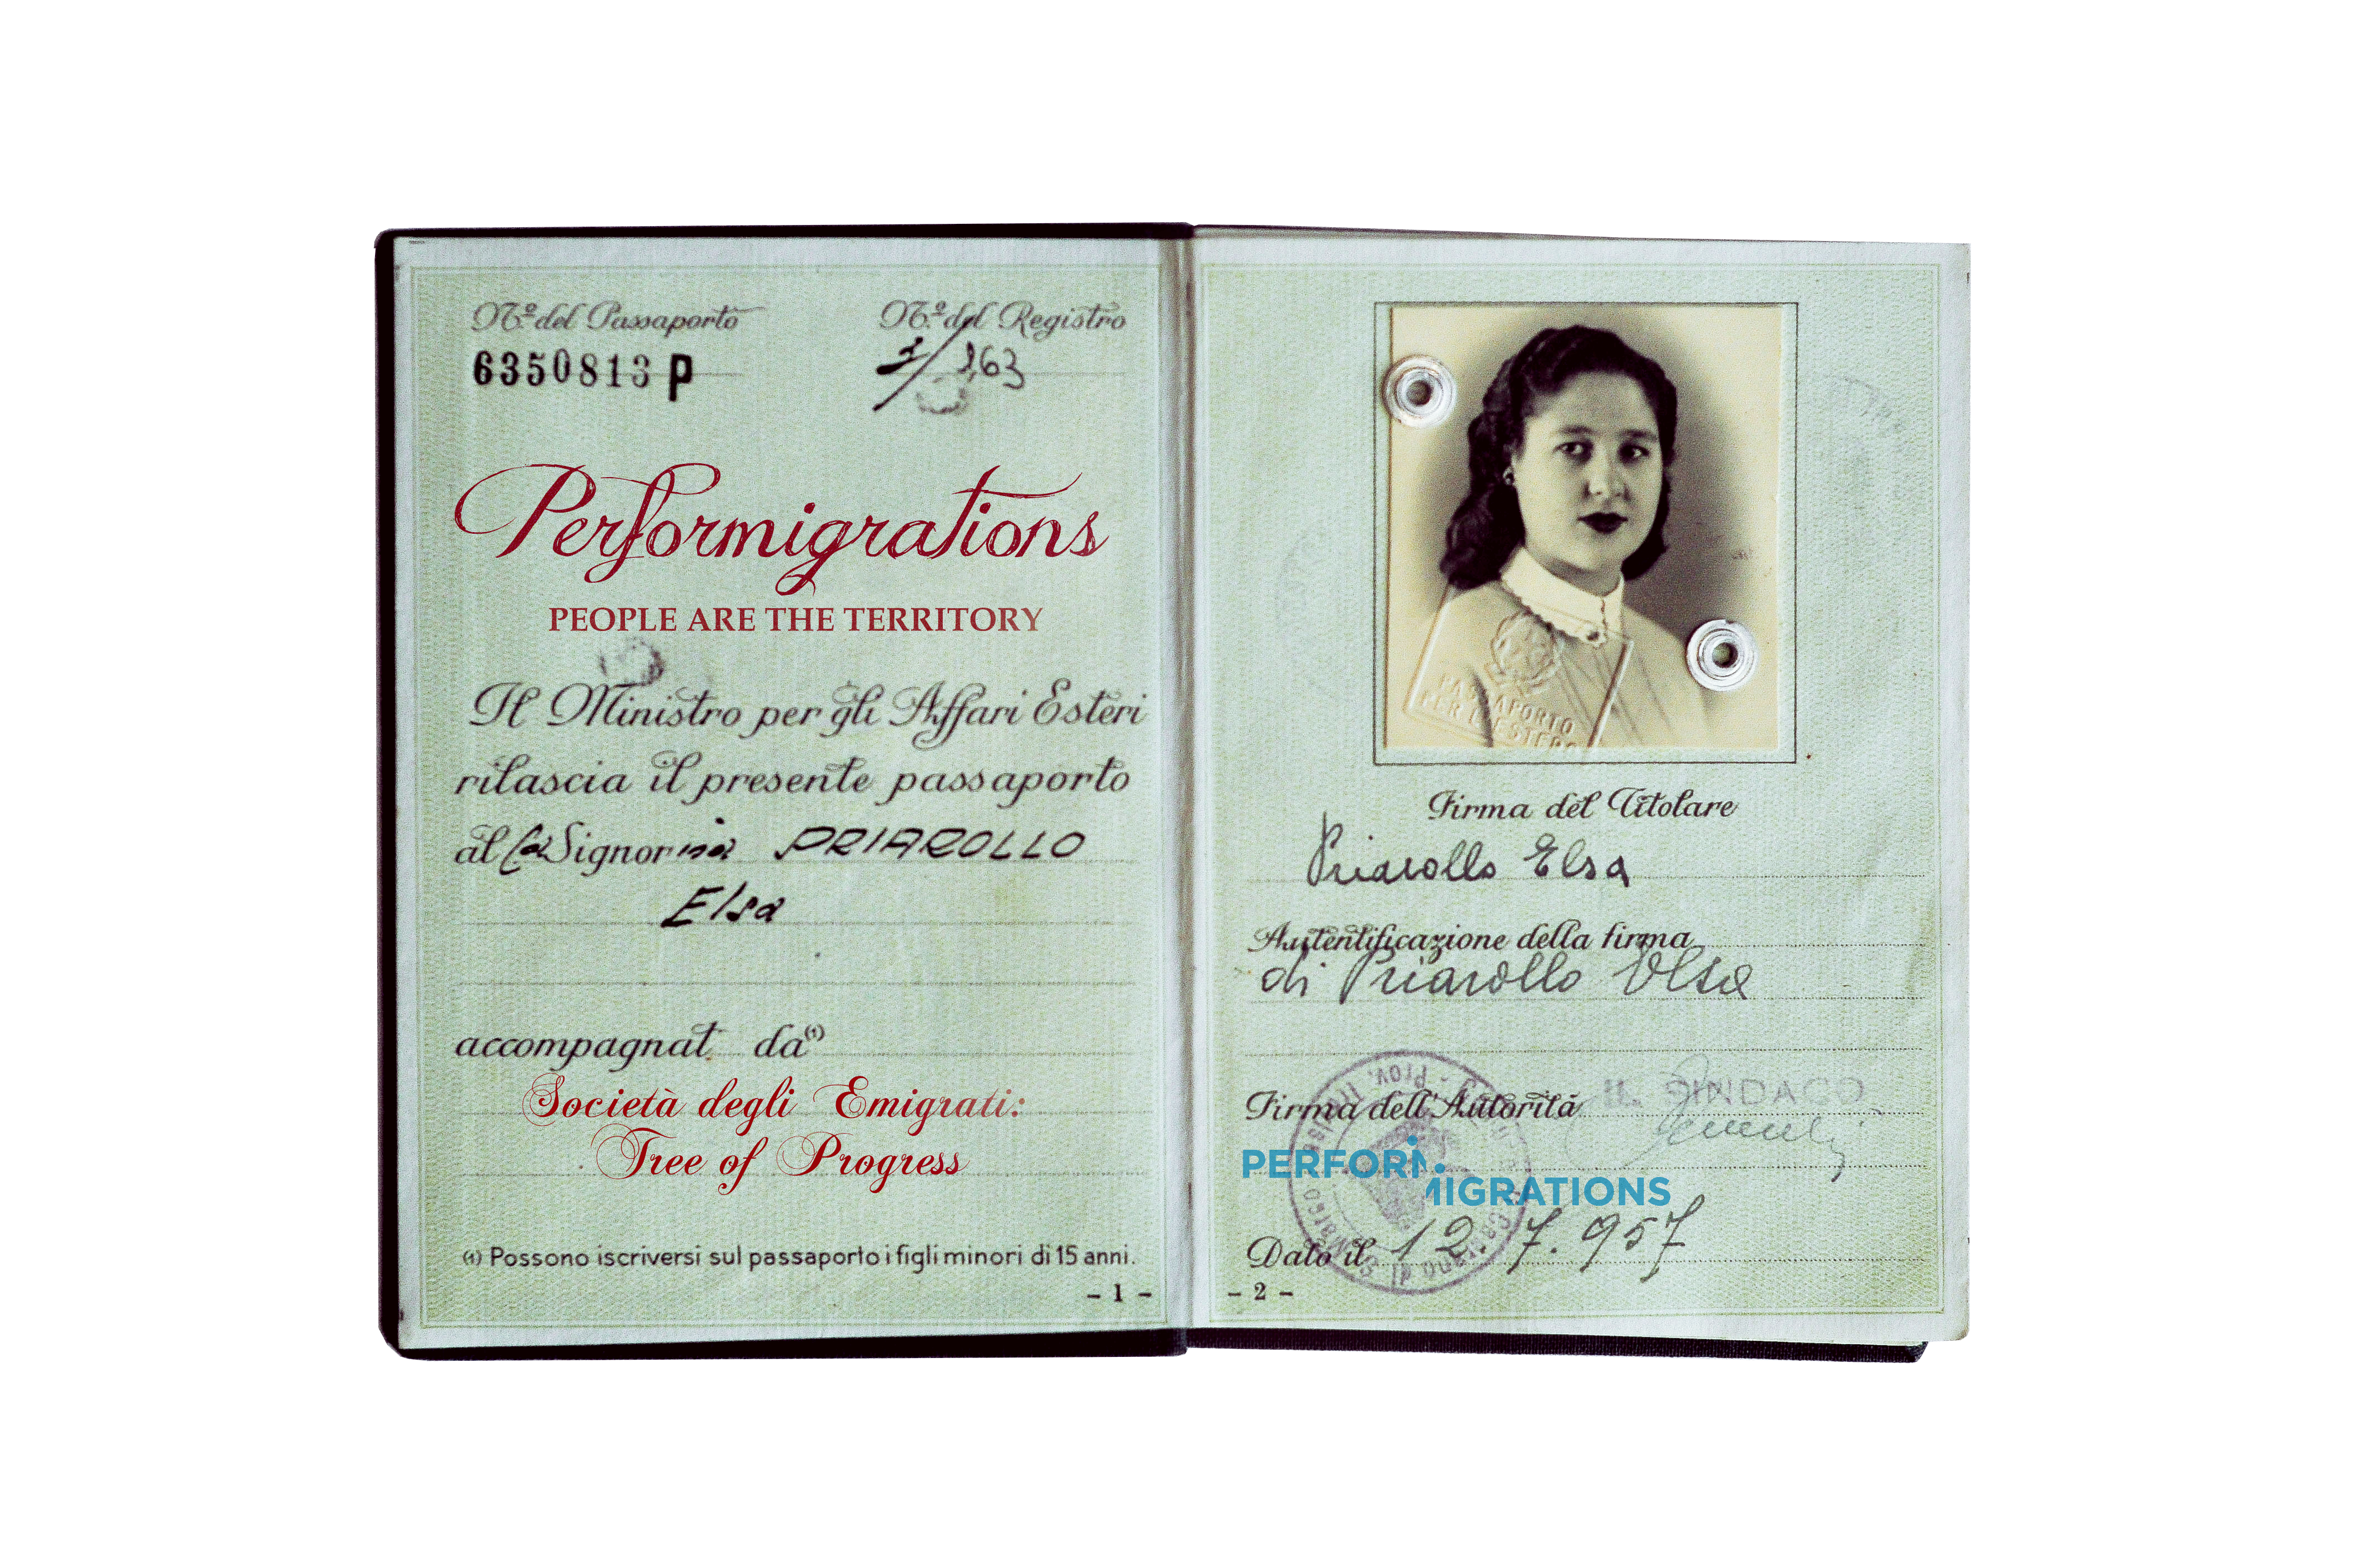 Nº del Passaporto
Nº del Registro
6350813 P
Performigrations
PEOPLE ARE THE TERRITORY
Il Ministro per gli Affari Esteri
rilascia il presente passaporto
al la Signorina PRIAROLLO
Elsa
accompagnat da(1)
Società degli Emigrati:
Tree of Progress
(1) Possono iscriversi sul passaporto i figli minori di 15 anni.
- 1 -
PASSAPORTO
PER L'ESTERO
Firma del Titolare
Priarollo Elsa
Autentificazione della firma
di Priarollo Elsa
Firma dell'Autorità IL SINDACO
PERFORM
MIGRATIONS
Dato il 12. 7. 957
- 2 -